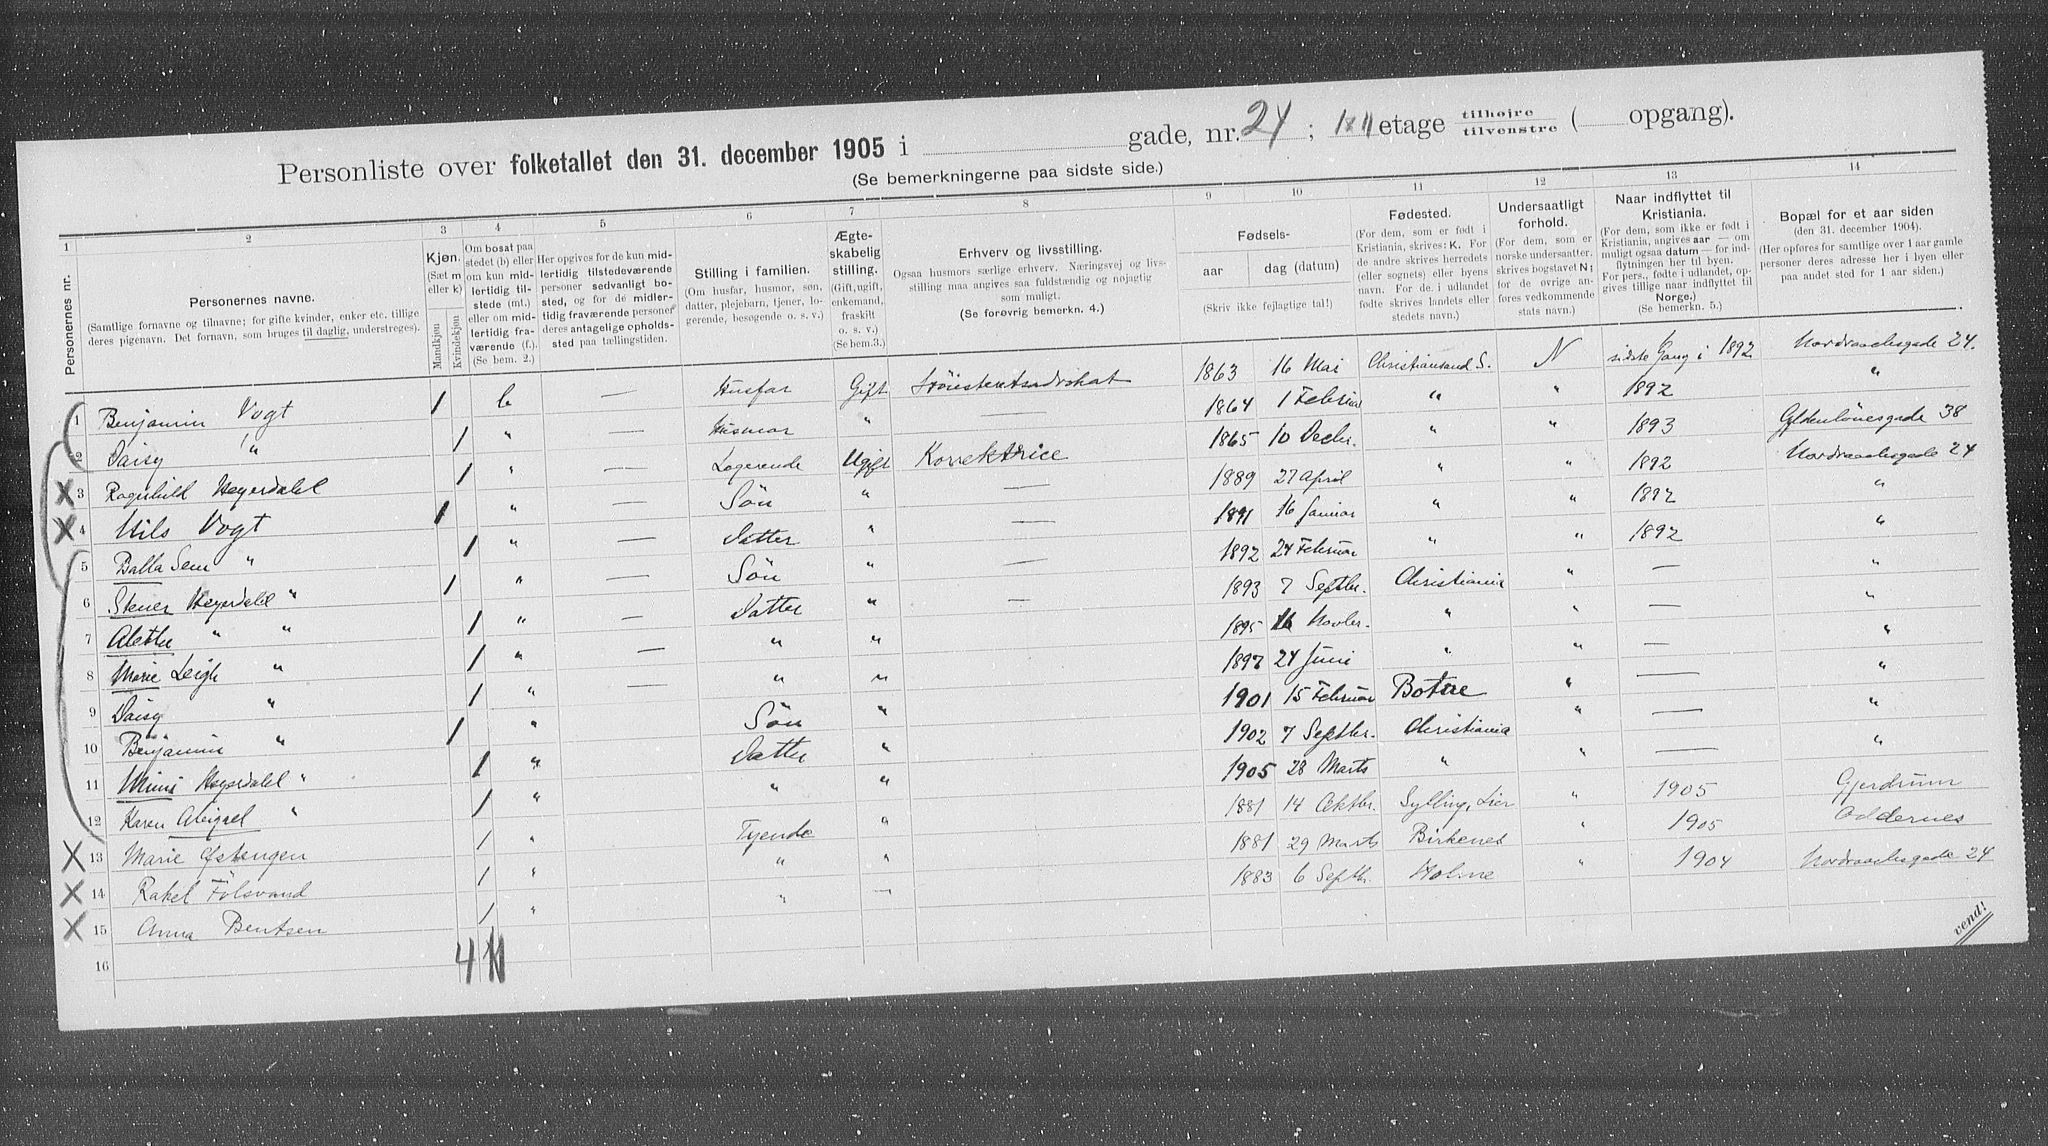 Personliste over folketallet den 31. december 1905 i gade, nr. 24; I & II etage tilhøjre tilvenstre ( opgang).
(Se bemerkningerne paa sidste side.)
1 2 3 4 5 6 7 8 9 10 11 12 13 14
Personernes nr.
Personernes navne.
(Samtlige fornavne og tilnavne; for gifte kvinder, enker etc. tillige
deres pigenavn. Det fornavn, som bruges til daglig, understreges).
Kjøn.
(Sæt m
eller k)
Mandkjøn
Kvindekjøn
Om bosat paa
stedet (b) eller
om kun mid-
lertidig til-
stede (mt.)
eller om mid-
lertidig fra-
værende (f.).
(Se bem. 2.)
Her opgives for de kun mid-
lertidig tilstedeværende
personer sedvanligt bo-
sted, og for de midler-
tidig fraværende personer
deres antagelige opholds-
sted paa tællingstiden.
Stilling i familien.
(Om husfar, husmor, søn,
datter, plejebarn, tjener, lo-
gerende, besøgende o. s. v.)
Ægte-
skabelig
stilling.
(Gift, ugift,
enkemand,
fraskilt
o. s. v.)
(Se bem. 3.)
Erhverv og livsstilling.
Ogsaa husmors særlige erhverv. Næringsvej og livs-
stilling maa angives saa fuldstændig og nøjagtig
som muligt.
(Se forøvrig bemerkn. 4.)
Fødsels-
aar dag (datum)
(Skriv ikke fejlagtige tal!)
Fødested.
(For dem, som er født i
Kristiania, skrives: K. For
de andre skrives herredets
(eller sognets) eller byens
navn. For de i udlandet
fødte skrives landets eller
stedets navn.)
Undersaatligt
forhold.
(For dem, som er
norske undersaatter,
skrives bogstavet N;
for de øvrige an-
føres vedkommende
stats navn.)
Naar indflyttet til
Kristiania.
(For dem, som ikke er født i
Kristiania, angives aar — om
muligt ogsaa datum — for ind-
flytningen her til byen.
For pers., fødte i udlandet, op-
gives tillige naar indflyttet til
Norge.)
(Se bemerkn. 5.)
Bopæl for et aar siden
(den 31. december 1904).
(Her opføres for samtlige over 1 aar gamle
personer deres adresse her i byen eller
paa andet sted for 1 aar siden.)
1 Benjamin Vogt 1 b — Husfar Gift Høiesteretsadvokat 1863 16 Mai Christiansand S. N sidste Gang i 1892 Nordraachsgade 24.
2 Daisy " 1 " — Husmor " — 1864 1 Februar " " 1892 "
X 3 Ragnhild Heyerdahl 1 " — Logerende Ugift Korrektrice 1865 10 Decbr. " " 1893 Gyldenlövesgade 38
X 4 Nils Vogt 1 " — Sön " — 1889 27 April " " 1892 Nordraachsgade 24
5 Balla Sem " 1 " — Datter " — 1891 16 Januar " " 1892 "
6 Stener Heyerdahl " 1 " — Sön " — 1892 24 Februar " " 1892 "
7 Alethe " " 1 " — Datter " — 1893 7 Septbr. Christiania " — "
8 Marie Leigh " 1 " — " " 1895 16 Novbr. " " — "
9 Daisy " 1 " — " " 1897 24 Juni " " — "
10 Benjamin " 1 " Sön " 1901 15 Februar Botne " — "
11 Mimi Heyerdahl " 1 " Datter " 1902 7 Septbr. Christiania " — "
12 Karen Abigael " 1 " " " 1905 28 Marts " " — "
X 13 Marie Østengen 1 " Tyende " 1881 14 Oktbr. Sylling, Lier " 1905 Gjerdrum
X 14 Rakel Fölsvand 1 " " " 1881 29 Marts Birkenes " 1905 Oddernes
X 15 Anna Bentsen 1 " " — 1883 6 Septbr. Holme " 1904 Nordraachsgade 24
16
4 11
vend!